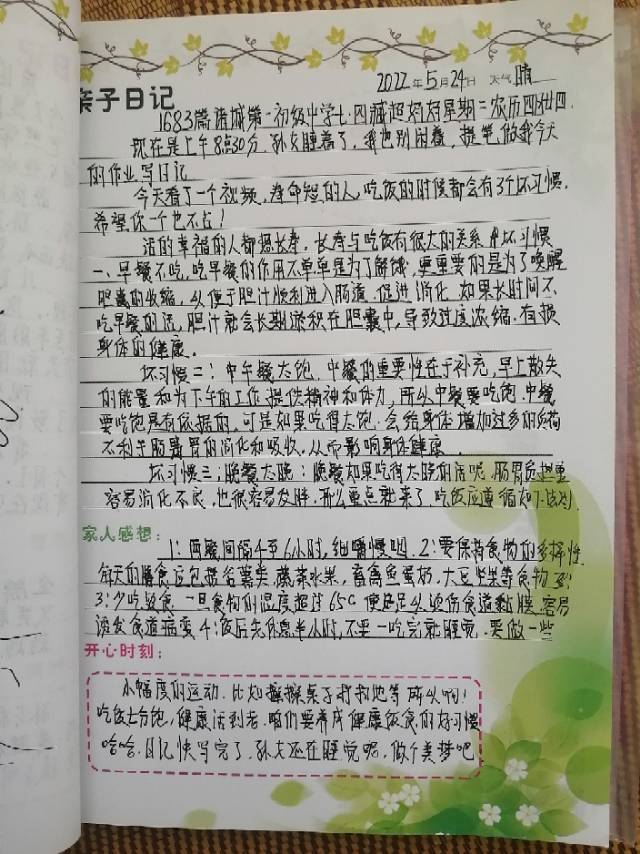 2022年5月24日 天气 晴
亲子日记
1683篇诸城第一初级中学七.四臧超妈妈星期二农历四廿四.
现在是上午8点30分.孙女睡着了,我也别闲着,提笔做我今天
的作业.写日记
今天看了一个视频,寿命短的人,吃饭的时候都会有3个坏习惯.
希望你一个也不占!
活的幸福的人都想长寿.长寿与吃饭有很大的关系 坏习惯
一、早餐不吃.吃早餐的作用不单单是为了解饿,更重要的是为了唤醒
胆囊的收缩,从便于胆汁顺利进入肠道.促进消化.如果长时间不
吃早餐的话,胆汁就会长期淤积在胆囊中,导致过度浓缩.有损
身体的健康.
坏习惯二:中午餐太饱.中餐的重要性在于补充,早上散失
的能量和为下午的工作提供精神和体力,所以中餐要吃饱.中餐
要吃饱是有依据的,可是如果吃得太饱.会给身体增加过多的负荷
不利于肠胃的消化和吸收.从而影响身体健康.
坏习惯三:晚餐太晚:晚餐如果吃得太晚的话呢.肠胃负担重
容易消化不良,也很容易发胖.那么重点就来了.吃饭应遵循如下法则.
家人感想:
1:两餐间隔4至6小时,细嚼慢咽.2:要保持食物的多样性
每天的膳食应包括谷薯类,蔬菜水果,畜禽鱼蛋奶.大豆坚果等食物
3:少吃烫食.一旦食物的温度超过65℃便足以烫伤食道黏膜.容易
诱发食道病变4:饭后先休息半小时,不要一吃完就睡觉.要做一些
开心时刻:
小幅度的运动.比如擦擦桌子扫扫地等
吃饭七分饱,健康活到老.咱们要养成健康饮食的好习惯
哈哈.日记快写完了.孙女还在睡觉呢.做个美梦吧